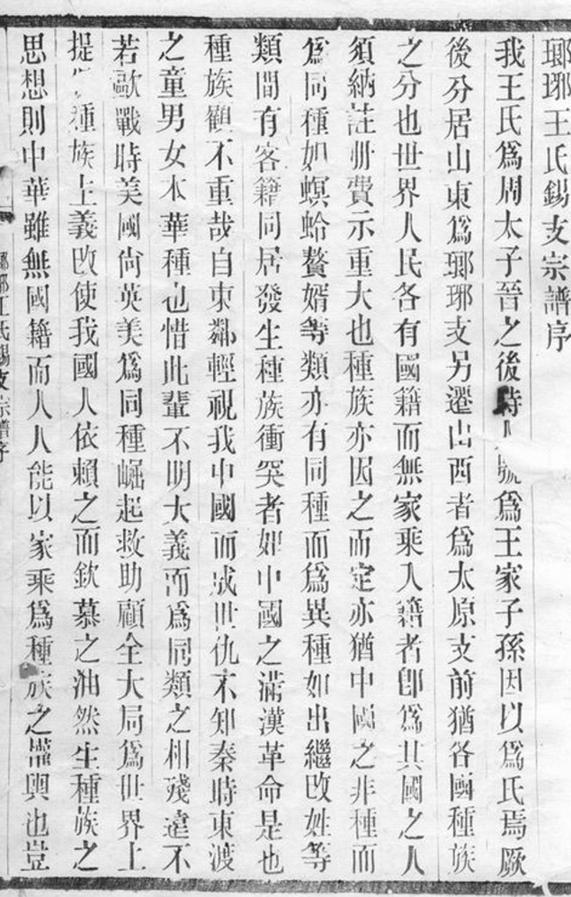 瑯琊王氏錫支宗譜序
我王氏爲周太子晉之後時人號爲王家子孫因以爲氏焉厥
後分居山東爲瑯琊支另遷山西者爲太原支前猶各國種族
之分也世界人民各有國籍而無家乘入籍者卽爲其國之人
須納註册費示重大也種族亦因之而定亦猶中國之非種而
爲同種如螟蛉贅婿等類亦有同種而爲異種如出繼改姓等
類間有客籍同居發生種族衝突者如中國之滿漢革命是也
種族觀不重哉自東鄰輕視我中國而成世仇不知秦時東渡
之童男女本華種也惜此輩不明大義而爲同類之相殘遠不
若歐戰時美國尙英美爲同種崛起救助顧全大局爲世界上
提 種族上義改使我國人依賴之而欽慕之油然生種族之
思想則中華雖無國籍而人人能以家乘爲種族之權輿也豈
瑯琊王氏錫支宗譜序